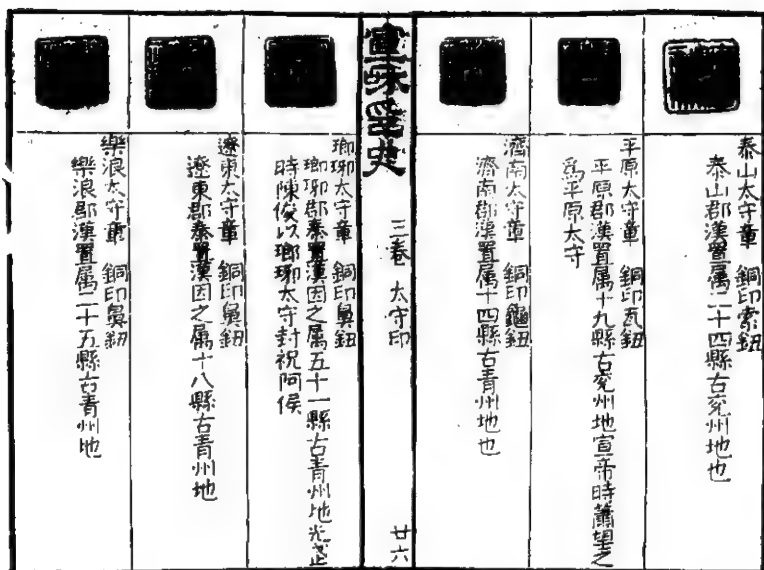 泰山太守章　銅印索鈕
泰山郡漢置属二十四縣古兖州地也
平原太守章　銅印瓦鈕
平原郡漢置属十九縣古兖州地宣帝時蕭望之
爲平原太守
濟南太守章　銅印龜鈕
濟南郡漢置属十四縣古青州地也
宣和印史　三卷　太守印　廿六
瑯琊太守章　銅印鼻鈕
瑯琊郡秦置漢因之属五十一縣古青州地光武
時陳俊以瑯琊太守封祝阿侯
遼東太守章　銅印鼻鈕
遼東郡秦置漢因之属十八縣古青州地
樂浪太守章　銅印鼻鈕
樂浪郡漢置属二十五縣古青州地